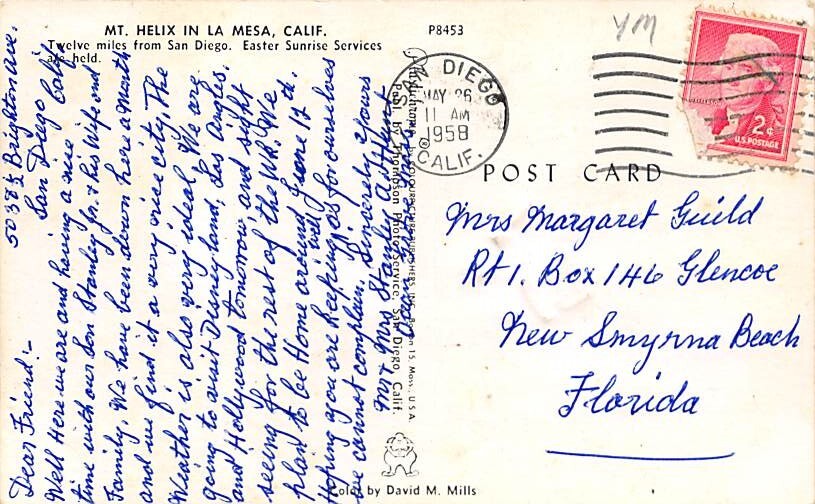 MT. HELIX IN LA MESA, CALIF.
Twelve miles from San Diego. Easter Sunrise Services
are held.
P8453
5038½ Brighton Ave.
San Diego Calif.
Dear Friend:-
Well Here we are and having a nice
time with our Son Stanley Jr. & his Wife and
Family. We have been down here a month
and we find it a very nice city, The
Weather is also very ideal, We are
going to visit Disneyland, Los Angles.
and Hollywood tomorrow, and sight
seeing for the rest of the Wk. We
plan to be Home around June 12th.
Hoping you are keeping well as for ourselves
we cannot complain. Sincerely yours
Mr & Mrs Stanley
Publ. by Thompson Photo Service, San Diego, Calif.
Color by David M. Mills
SAN DIEGO
MAY 26
11 AM
1958
CALIF.
YM
2¢
U.S. POSTAGE
POST CARD
Mrs Margaret Guild
Rt 1. Box 146 Glencoe
New Smyrna Beach
Florida